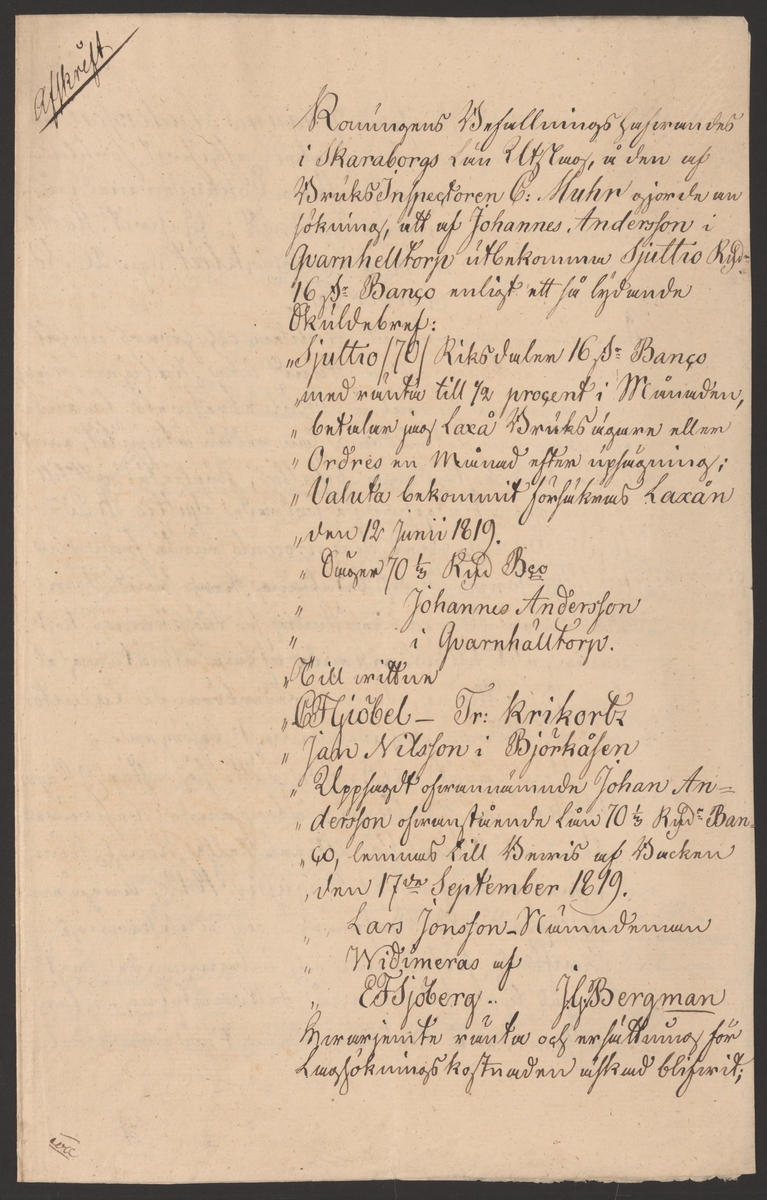 Afskrift
Konungens Befallningshafwandes
i Skaraborgs Län Utslag, å den af
BruksInspectoren C: Muhr gjorde an
sökning, att af Johannes Andersson i
Qvarnhelltorp utbekomma Sjuttio Rijdr
16 sr Banço enligt ett så lydande
Skuldebref:
"Sjuttio /70/ Riksdaler 16 sr Banço
"med ränta till 1/2 proçent i Månaden,
"betalar jag Laxå Bruksägare eller
"Ordres en Månad efter upsägning;
"Valuta bekommit försäkras Laxån
"den 12 Junii 1819.
"Säger 70 1/3 Rijd Bço
" Johannes Andersson
" i Qvarnhälltorp.
"Till wittne
" Tr: Krikortz
"Jan Nilsson i Björkåsen
"Uppsagdt ofwannämnde Johan An=
"dersson ofwanstående Lån 70 1/3 Rijdr Ban
"ço, lemnas till Bewis af Backen
"den 17de September 1819.
" Lars Jonsson - Nämndeman
" Widimeras af
" E F Sjöberg.. J.G. Bergman
Hwarjemte ränta och ersättning för
Lagsökningskostnaden äskad blifwit;